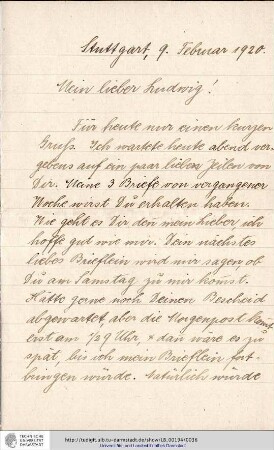 Stuttgart, 9. Februar 1920.
Mein lieber Ludwig!
Für heute nur einen kurzen
Gruß. Ich wartete heute abend ver-
gebens auf ein paar lieben Zeilen von
Dir. Meine 3 Briefe von vorgangener
Woche wirst Du erhalten haben.
Wie geht es Dir den mein lieber, ich
hoffe gut wie mir. Dein nächstes
liebes Brieflein wird mir sagen ob
Du am Samstag zu mir komst.
Hätte gerne noch Deinen Bescheid
abgewartet, aber die Morgenpost komt
erst am 1/2 9 Uhr, & dan wäre es zu
spät, bis ich mein Brieflein fort-
bringen würde. Natürlich würde
TECHNISCHE
UNIVERSITÄT
DARMSTADT
http://tudigit.ulb.tu-darmstadt.de/show/LB_00194/0036
Universitäts- und Landesbibliothek Darmstadt